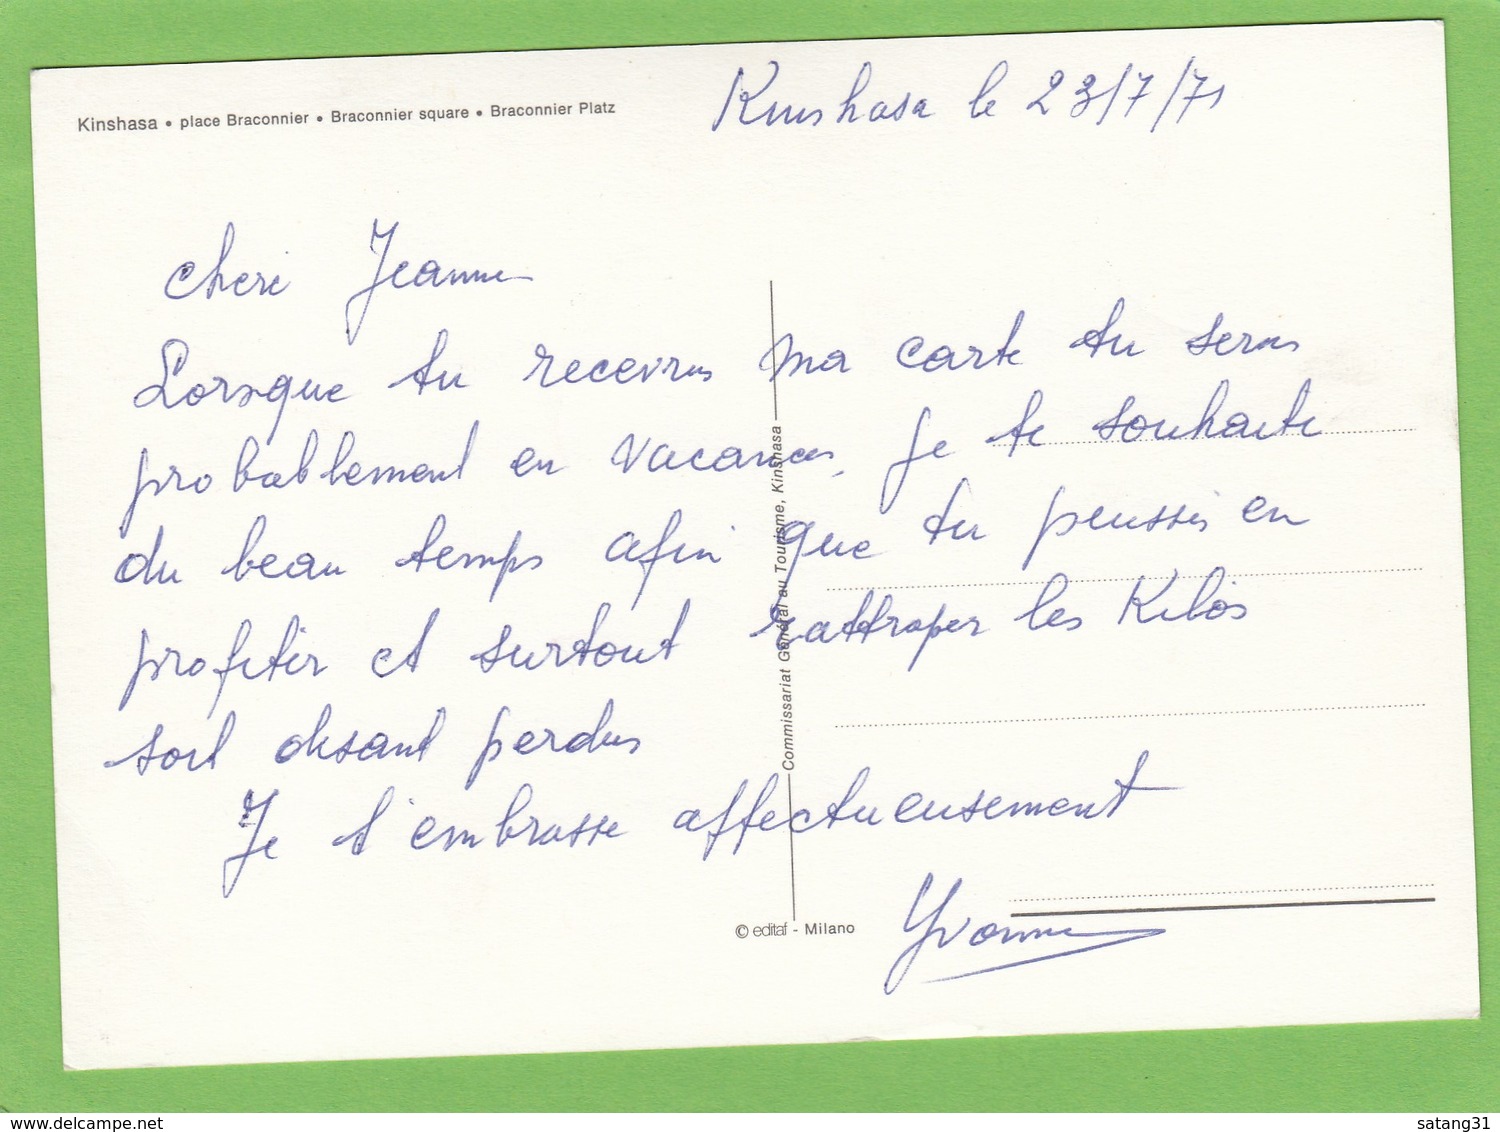 Kinshasa • place Braconnier • Braconnier square • Braconnier Platz
Kinshasa le 23/7/71
Cheri Jeanne
Lorsque tu recevras ma carte tu seras
probablement en vacances, je te souhaite
du beau temps afin que tu puisses en
profiter et surtout rattraper les Kilos
soit disant perdus
Je t'embrasse affectueusement
Yvonne
Commissariat Général au Tourisme, Kinshasa
© editaf - Milano
delcampe.net
satang31